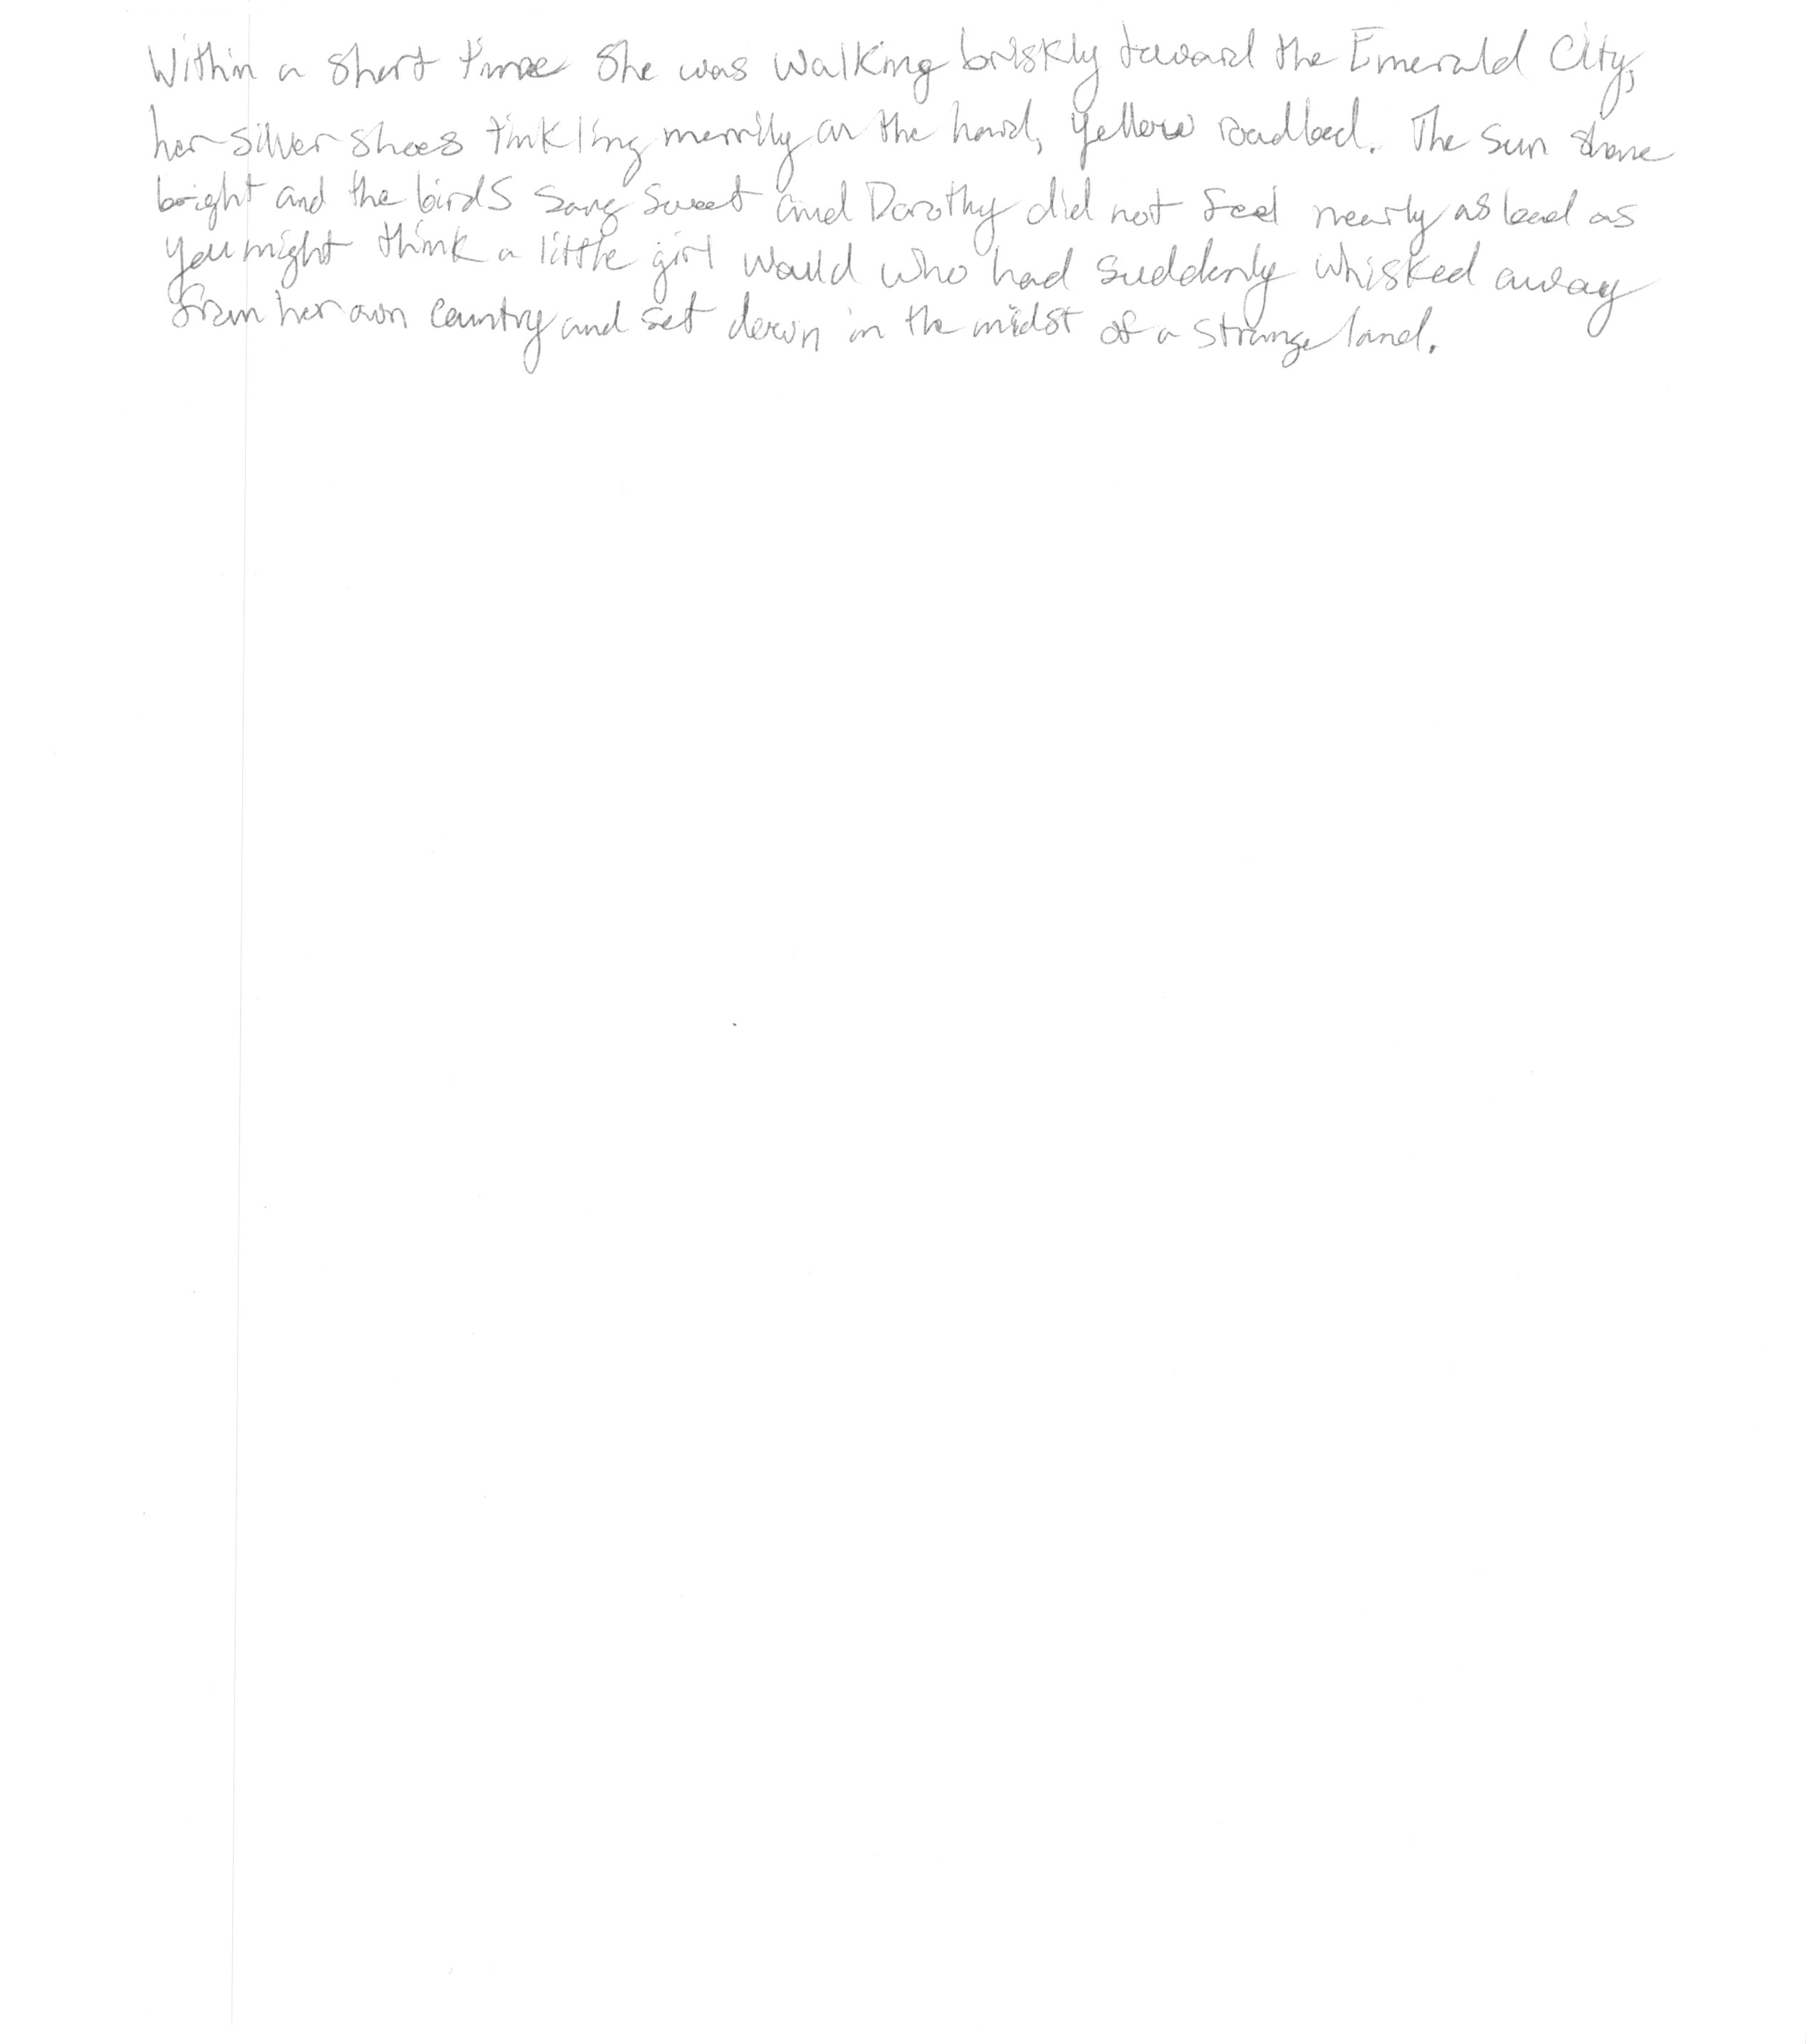 Within a short time she was walking briskly toward the Emerald City,
her silver shoes tinkling merrily on the hard, yellow roadbed. The sun shone
bright and the birds sang sweet and Dorothy did not feel nearly as bad as
you might think a little girl would who had suddenly whisked away
from her own country and set down in the midst of a strange land.